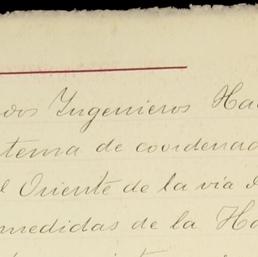 dos Ingenieros Ha
tema de coordenad
l Oriente de la via
medidas de la Ha